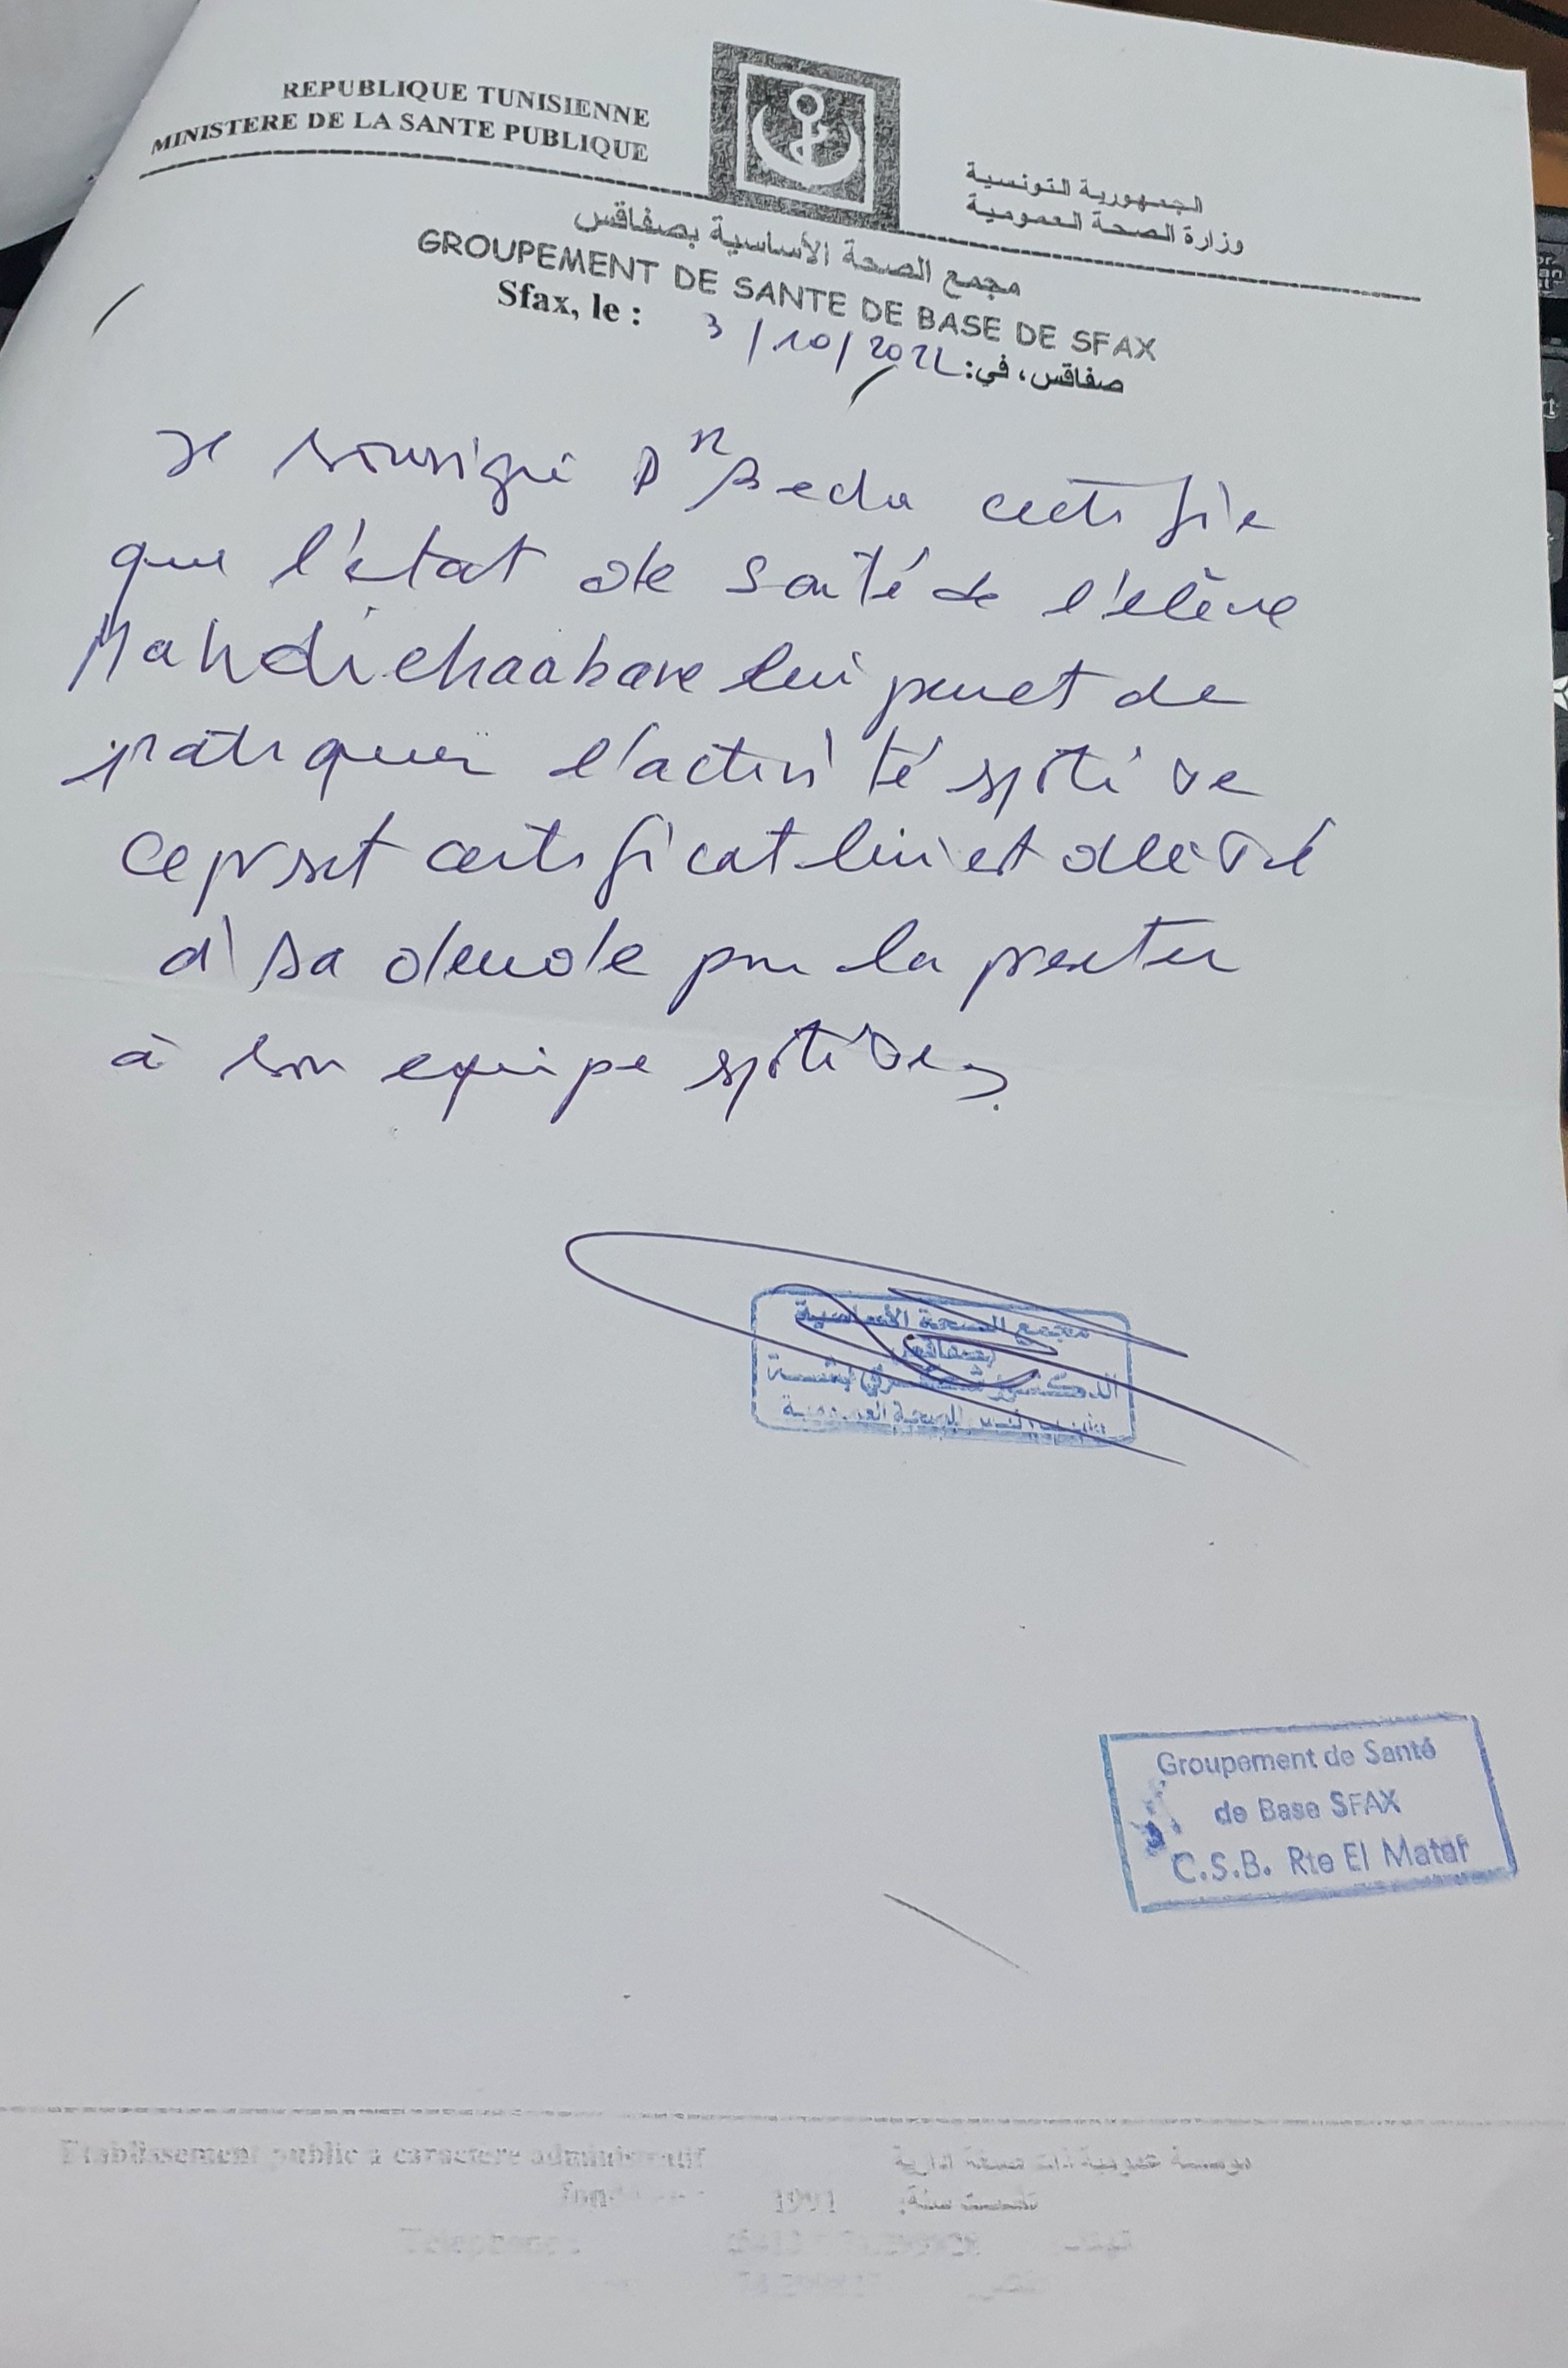 REPUBLIQUE TUNISIENNE
MINISTERE DE LA SANTE PUBLIQUE
الجمهورية التونسية
وزارة الصحة العمومية
مجمع الصحة الأساسية بصفاقس
GROUPEMENT DE SANTE DE BASE DE SFAX
Sfax, le : 3/10/2022 صفاقس، في:
Je soussigné Dr certifie
que l'état de santé de l'élève
Mahdi chaabane lui permet de
pratiquer l'activité sportive
ce present certificat lui est délivré
à sa demande pour la presenter
à son equipe sportive
مجمع الصحة الأساسية
بصفاقس
الدكتور
الصحة العمومية
Groupement de Santé
de Base SFAX
C.S.B. Rte El Matar
Etablissement public à caractère administratif
مؤسسة عمومية ذات صبغة إدارية
1991
Telephone :